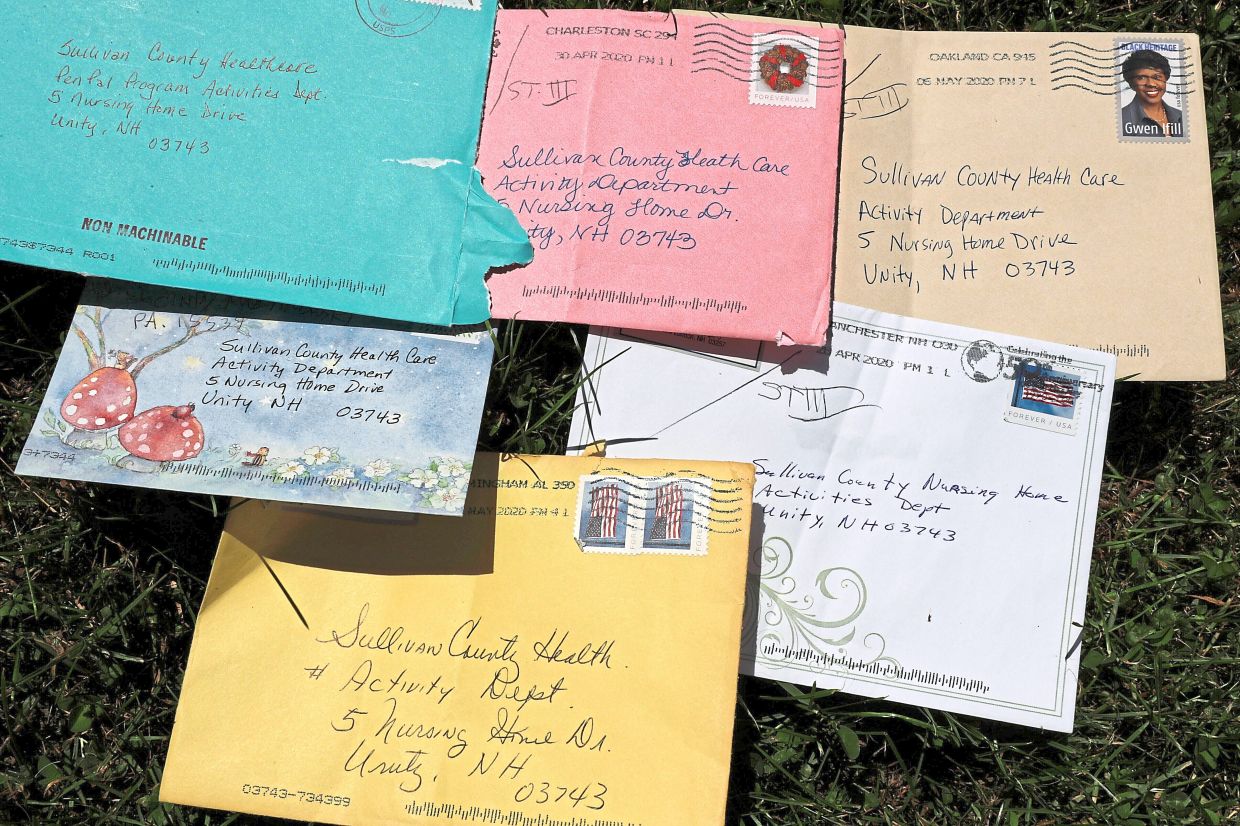 USPS
Sullivan County Healthcare
Pen Pal Program Activities Dept.
5 Nursing Home Drive
Unity, NH
03743
NON MACHINABLE
R001
CHARLESTON SC 294
30 APR 2020 PM 1 L
ST. III
FOREVER/USA
Sullivan County Heath Care
Activity Department
5 Nursing Home Dr.
NH 03743
OAKLAND CA 945
05 MAY 2020 PM 7 L
ST. III
BLACK HERITAGE
Gwen Ifill
Sullivan County Health Care
Activity Department
5 Nursing Home Drive
Unity, NH 03743
PA.
Sullivan County Health Care
Activity Department
5 Nursing Home Drive
Unity NH 03743
ANCHESTER NH 030
APR 2020 PM 1 L
Celebrating the
ST III
FOREVER / USA
Sullivan County Nursing Home
Activities Dept
Unity, NH 03743
MINGHAM AL 350
MAY 2020 PM 4 L
Sullivan County Health
# Activity Dept.
5 Nursing Home Dr.
Unity, NH
03743
03743-734399